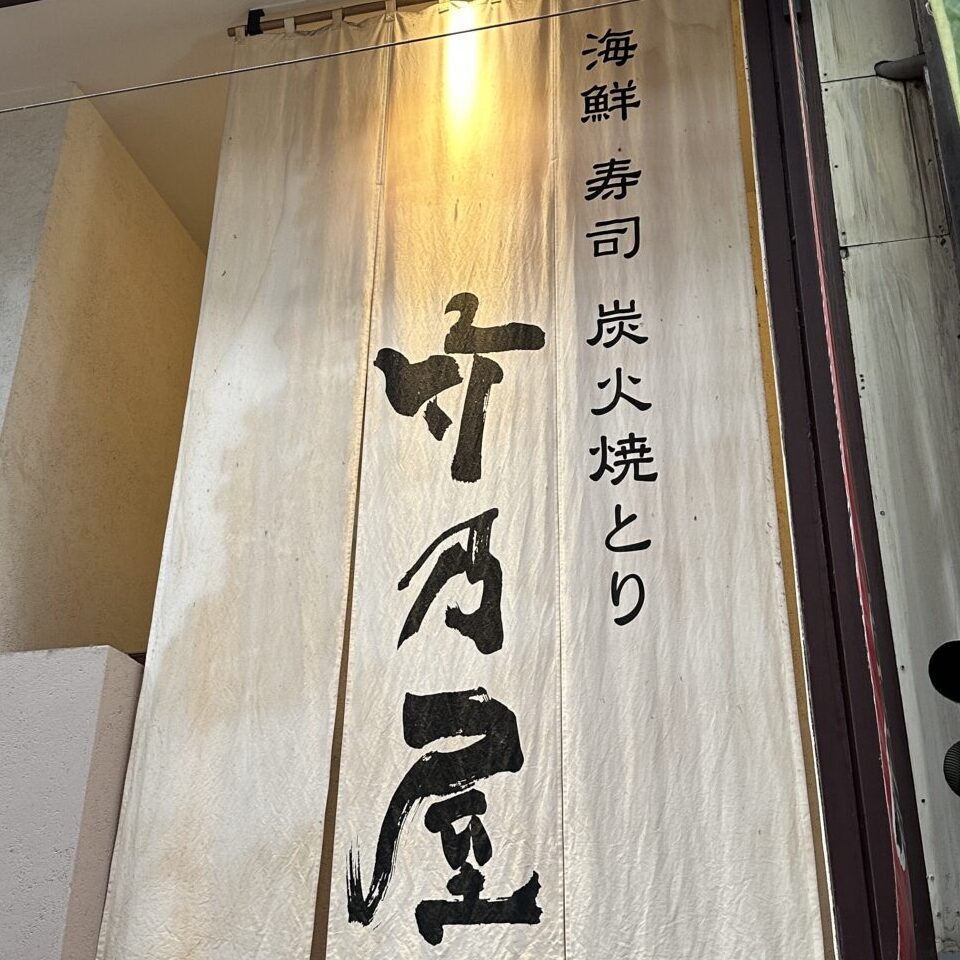 海鮮 寿司 炭火焼とり
竹乃屋